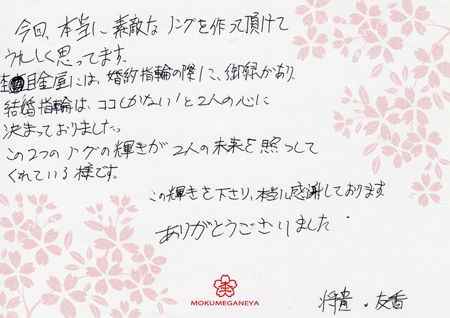 今回、本当に素敵なリングを作って頂けて
うれしく思ってます。
杢目金屋には、婚約指輪の際に、御縁があり、
結婚指輪は、ココしかない!と2人の心に
決まっておりました。
この2つのリングの輝きが2人の未来を照らして
くれている様です。
この輝きを下さり、本当に感謝しております
ありがとうございました
MOKUMEGANEYA
将貴・友香